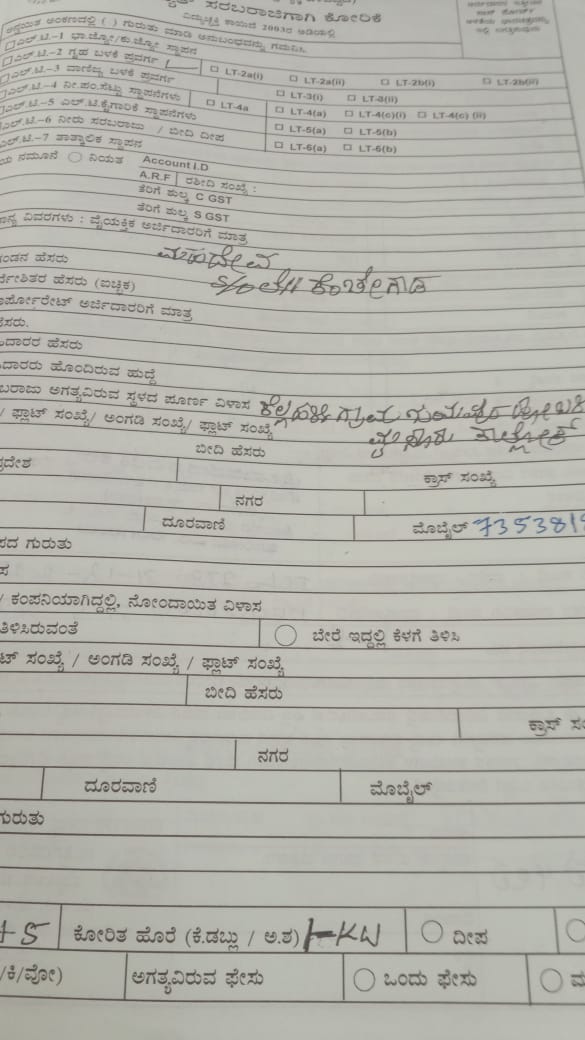 ಸರಬರಾಜಿಗಾಗಿ ಕೋರಿಕೆ
ವಿದ್ಯುಚ್ಛಕ್ತಿ ಕಾಯಿದೆ 2003ರ ಅಡಿಯಲ್ಲಿ
ಅಂಕಣದಲ್ಲಿ ( ) ಗುರುತು ಮಾಡಿ ಅನುಬಂಧವನ್ನು ಗಮನಿಸಿ.
ಎಲ್.ಟಿ.-1 ಭಾ.ಜ್ಯೋ/ಕು.ಜ್ಯೋ ಸ್ಥಾಪನ
ಎಲ್.ಟಿ.-2 ಗೃಹ ಬಳಕೆ ಪ್ರವರ್ಗ □ LT-2a(i) □ LT-2a(ii) □ LT-2b(i) □ LT-2b(ii)
ಎಲ್.ಟಿ.-3 ವಾಣಿಜ್ಯ ಬಳಕೆ ಪ್ರವರ್ಗ □ LT-3(i) □ LT-3(ii)
ಎಲ್.ಟಿ.-4 ನೀ.ಪಂ.ಸೆಟ್ಟು ಸ್ಥಾಪನೆಗಳು □ LT-4a □ LT-4(a) □ LT-4(c)(i) □ LT-4(c) (ii)
ಎಲ್.ಟಿ.-5 ಎಲ್.ಟಿ.ಕೈಗಾರಿಕೆ ಸ್ಥಾಪನೆಗಳು □ LT-5(a) □ LT-5(b)
ಎಲ್.ಟಿ.-6 ನೀರು ಸರಬರಾಜು / ಬೀದಿ ದೀಪ □ LT-6(a) □ LT-6(b)
ಎಲ್.ಟಿ.-7 ತಾತ್ಕಾಲಿಕ ಸ್ಥಾಪನ
ಯ ನಮೂನೆ ○ ನಿಯತ Account I.D
A.R.F ರಶೀದಿ ಸಂಖ್ಯೆ :
ತೆರಿಗೆ ಶುಲ್ಕ C GST
ತೆರಿಗೆ ಶುಲ್ಕ S GST
ಾನ್ಯ ವಿವರಗಳು : ವೈಯಕ್ತಿಕ ಅರ್ಜಿದಾರರಿಗೆ ಮಾತ್ರ
ಂಡನ ಹೆಸರು ಮಹದೇವ
ರ್ದೇಶಿತರ ಹೆಸರು (ಐಚ್ಛಿಕ) S/o ಲೇ॥ ಕೆಂಚೇಗೌಡ
ಾರ್ಪೊರೇಟ್ ಅರ್ಜಿದಾರರಿಗೆ ಮಾತ್ರ
ೆಸರು.
ದಾರರ ಹೆಸರು
ದಾರರು ಹೊಂದಿರುವ ಹುದ್ದೆ
ಬರಾಜು ಅಗತ್ಯವಿರುವ ಸ್ಥಳದ ಪೂರ್ಣ ವಿಳಾಸ ಕೆಲ್ಲಹಳ್ಳಿ ಗ್ರಾಮ ಹೋಬಳಿ
/ ಫ್ಲಾಟ್ ಸಂಖ್ಯೆ/ ಅಂಗಡಿ ಸಂಖ್ಯೆ/ ಫ್ಲಾಟ್ ಸಂಖ್ಯೆ ಮೈಸೂರು ತಾಲ್ಲೋಕ್
ಬೀದಿ ಹೆಸರು
ಪ್ರದೇಶ ಕ್ರಾಸ್ ಸಂಖ್ಯೆ
ನಗರ
ದೂರವಾಣಿ ಮೊಬೈಲ್ 735381
ಪದ ಗುರುತು
ಸ
/ ಕಂಪನಿಯಾಗಿದ್ದಲ್ಲಿ, ನೋಂದಾಯಿತ ವಿಳಾಸ
ತಿಳಿಸಿರುವಂತೆ ○ ಬೇರೆ ಇದ್ದಲ್ಲಿ ಕೆಳಗೆ ತಿಳಿಸಿ
ಟ್ ಸಂಖ್ಯೆ / ಅಂಗಡಿ ಸಂಖ್ಯೆ / ಫ್ಲಾಟ್ ಸಂಖ್ಯೆ
ಬೀದಿ ಹೆಸರು
ಕ್ರಾಸ್ ಸಂ
ನಗರ
ದೂರವಾಣಿ ಮೊಬೈಲ್
ಗುರುತು
+5 ಕೋರಿತ ಹೊರೆ (ಕೆ.ಡಬ್ಲು / ಅ.ಶ) 1-KW ○ ದೀಪ
/ಕಿ/ವೋ) ಅಗತ್ಯವಿರುವ ಫೇಸು ○ ಒಂದು ಫೇಸು ○ ಮ